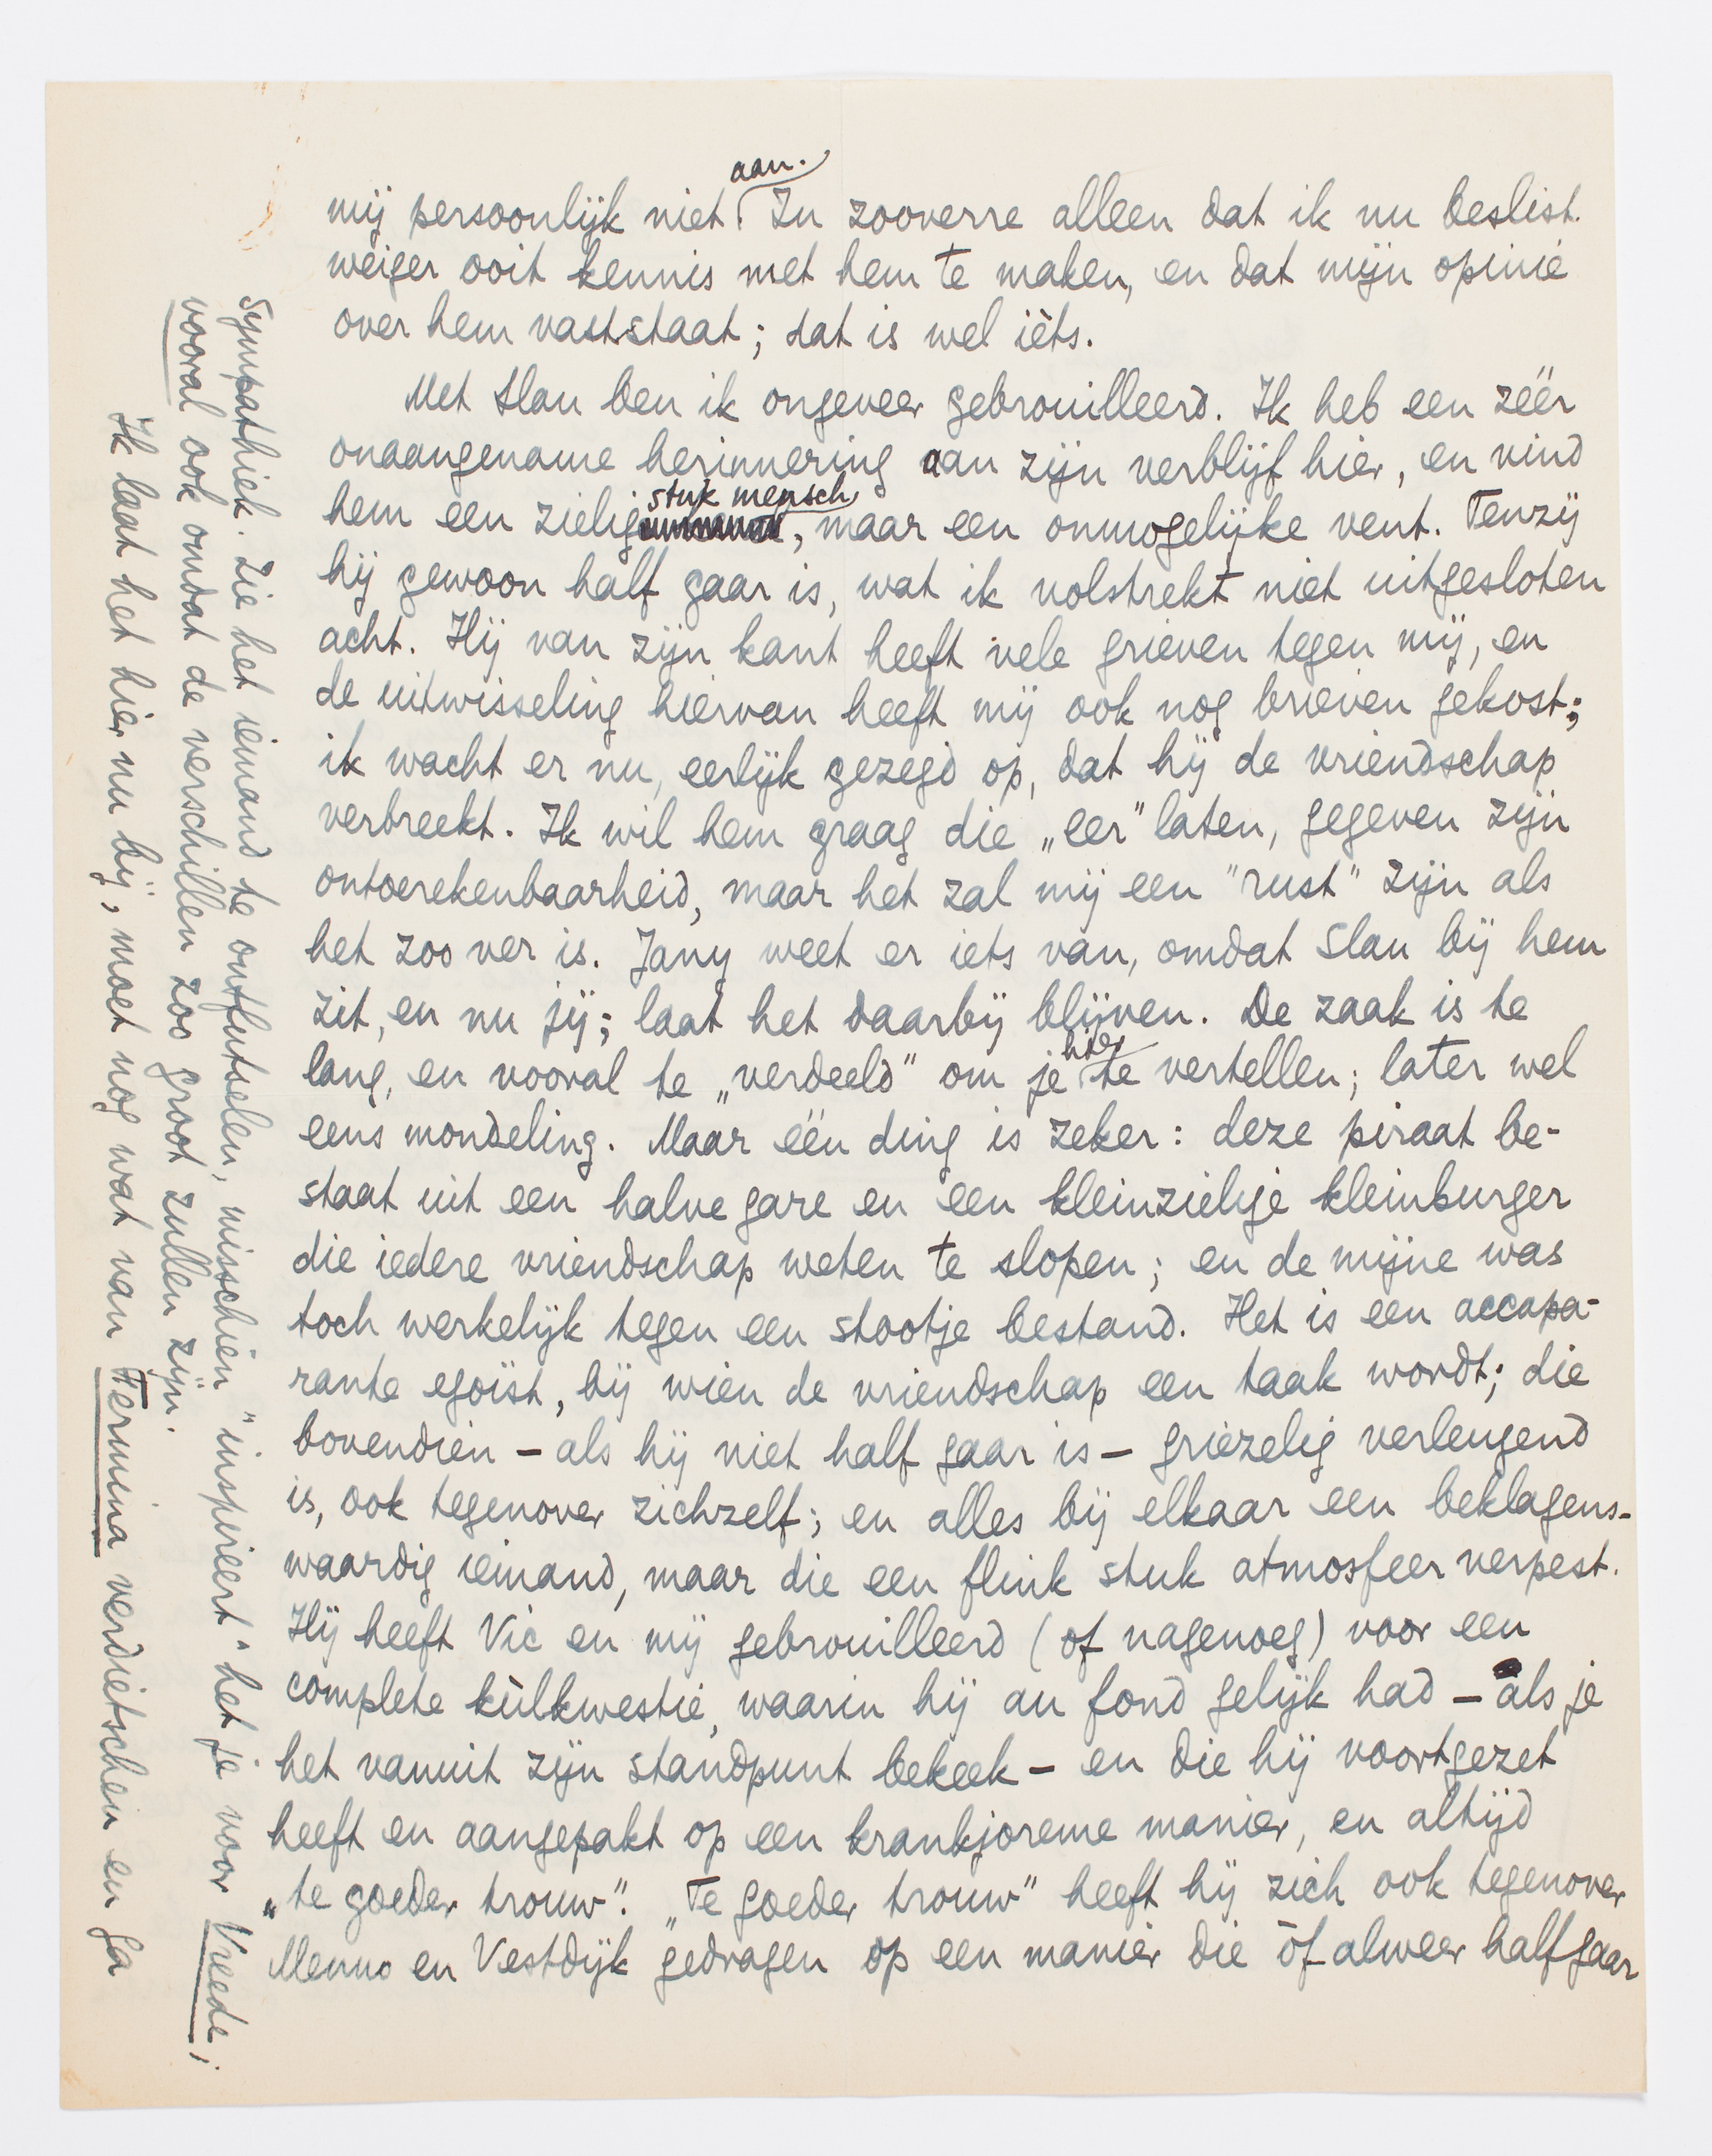 mij persoonlijk niet aan. In zooverre alleen dat ik nu beslist
weiger ooit kennis met hem te maken, en dat mijn opinie
over hem vaststaat; dat is wel iéts.
Met Slau ben ik ongeveer gebrouilleerd. Ik heb een zéér
onaangename herinnering aan zijn verblijf hier, en vind
hem een zielig stuk mensch, maar een onmogelijke vent. Tenzij
hij gewoon half gaar is, wat ik volstrekt niet uitgesloten
acht. Hij van zijn kant heeft vele grieven tegen mij, en
de uitwisseling hiervan heeft mij ook nog brieven gekost;
ik wacht er nu, eerlijk gezegd op, dat hij de vriendschap
verbreekt. Ik wil hem graag die „eer" laten, gegeven zijn
ontoerekenbaarheid, maar het zal mij een "rust" zijn als
het zoo ver is. Jany weet er iets van, omdat Slau bij hem
zit, en nu jij; laat het daarbij blijven. De zaak is te
lang, en vooral te „verdeeld" om je hier te vertellen; later wel
eens mondeling. Maar één ding is zeker: deze piraat be-
staat uit een halve gare en een kleinzielige kleinburger
die iedere vriendschap weten te slopen; en de mijne was
toch werkelijk tegen een stootje bestand. Het is een accapa-
rante egoïst, bij wien de vriendschap een taak wordt; die
bovendien – als hij niet half gaar is – griezelig verleugend
is, ook tegenover zichzelf; en alles bij elkaar een beklagens-
waardig iemand, maar die een flink stuk atmosfeer verpest.
Hij heeft Vic en mij gebrouilleerd (of nagenoeg) voor een
complete kùlkwestie, waarin hij au fond gelijk had – als je
het vanuit zijn standpunt bekeek – en die hij voortgezet
heeft en aangepakt op een krankjoreme manier, en altijd
„te goeder trouw". „Te goeder trouw" heeft hij zich ook tegenover
Menno en Vestdijk gedragen op een manier die òf alweer half gaar
sympathiek. Zie het iemand te ontfutselen, misschien "inspireert" het je voor Vreede;
vooral ook omdat de verschillen zoo groot zullen zijn.
Ik laat het hier nu bij, moet nog wat van Fermina verdietschen en ga